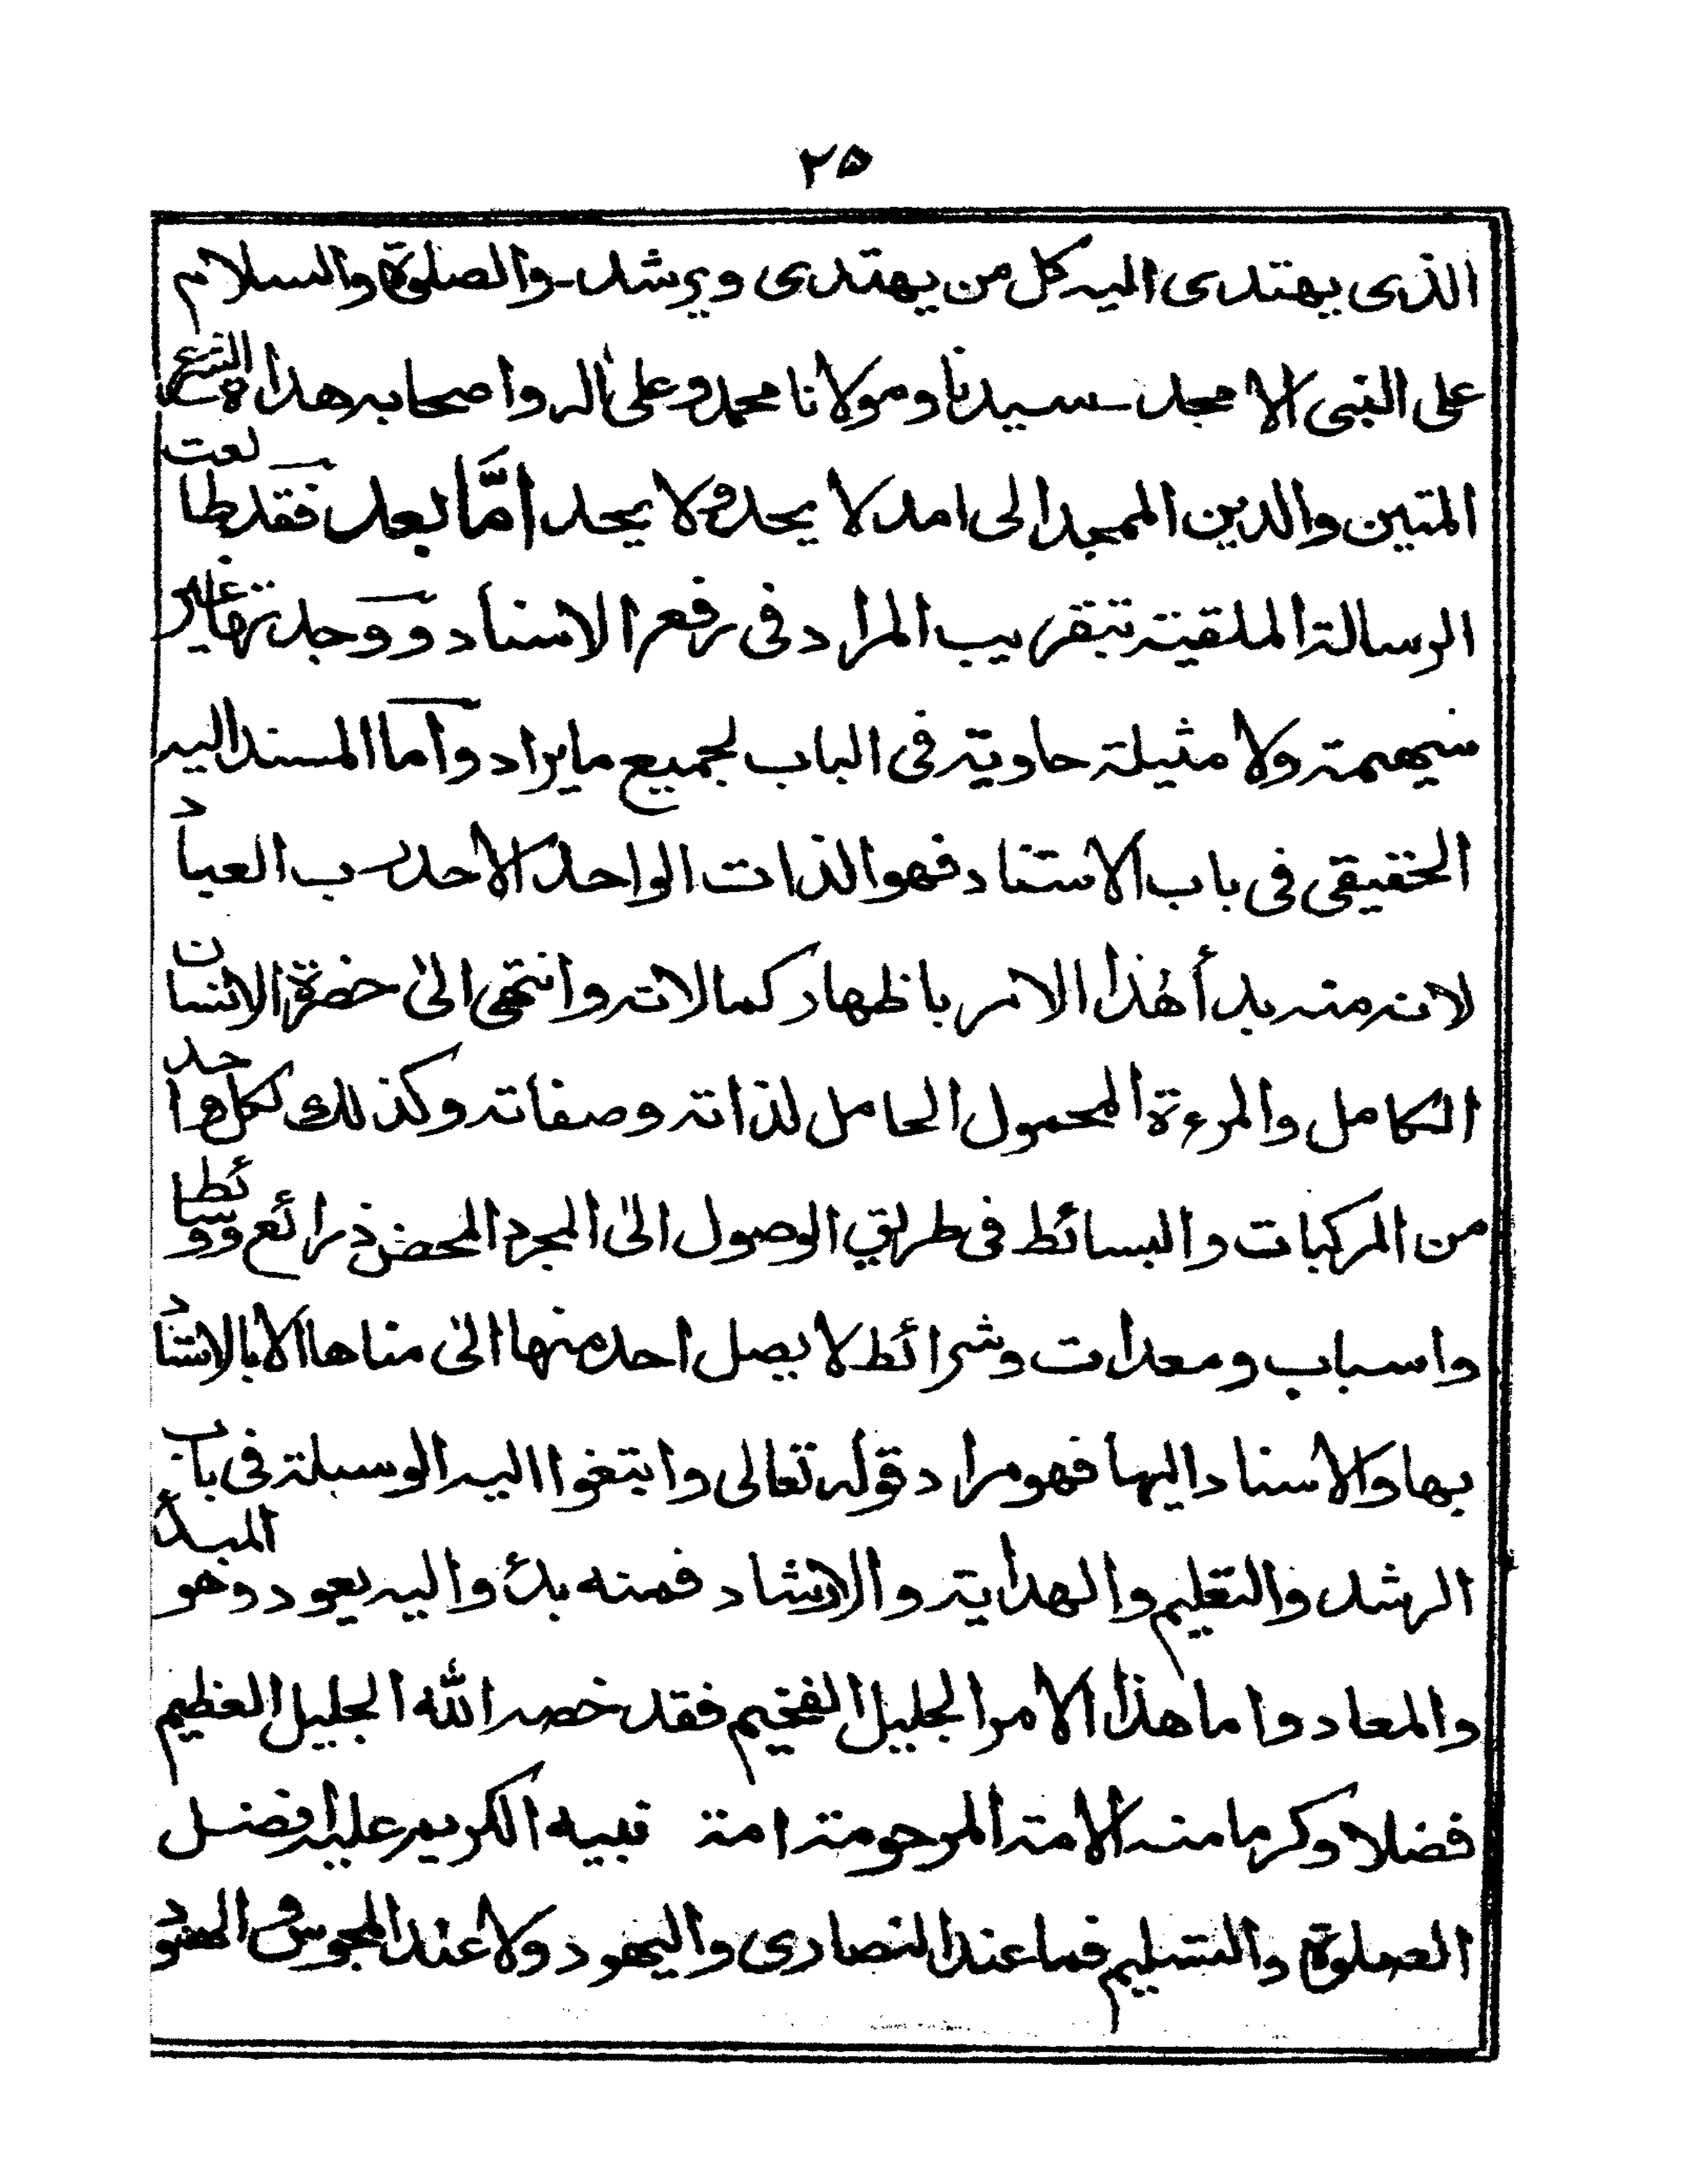 ٢٥
الذى يهتدى اليه كل من يهتدى ويرشد ـ والصلوة والسلام
على النبى الامجد ـ سيدنا ومولانا محمد وعلى اله واصحابه هداة الشرع
المتين والدين الممجد الى امد لا يحد ولا يحد امَّا بعد فقد طالعت
الرسالة الملقبة بتقريب المراد فى رفع الاسناد ووجدتها غير
سهيمة ولا مثيلة حاوية فى الباب لجميع ما يراد واما المسند اليه
الحقيقى فى باب الاستناد فهو الذات الواحد الاحد رب العباد
لانه منه بدأ هٰذا الامر باظهار كمالاته وانتهى الىٰ حضرة الانسان
الكامل والمرءة المحمول الحامل لذاته وصفاته وكذلك لكل واحد
من المركبات والبسائط فى طريق الوصول الىٰ المجرد المحض ذرائع ووسائط
واسباب ومعدات وشرائط لا يصل احد منها الىٰ مناها الا بالاستناد
بها والاسناد اليها فهو مراد قوله تعالى وابتغوا اليه الوسيلة فى باب
الرشد والتعليم والهداية والارشاد فمنه بدئ واليه يعود وهو المبدأ
والمعاد واما هذا الامر الجليل الفخيم فقد خصه الله الجليل العظيم
فضلا وكرما منه الامة المرحومة امة نبيه الكريم عليه افضل
الصلوة والتسليم فما عند النصارى واليهود ولا عند المجوس والهنود